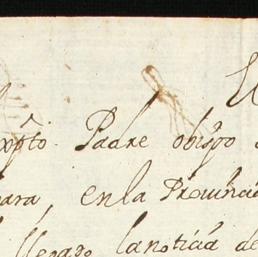 xpto. Padre obispo
para, en la Provincia
llegado la noticia de